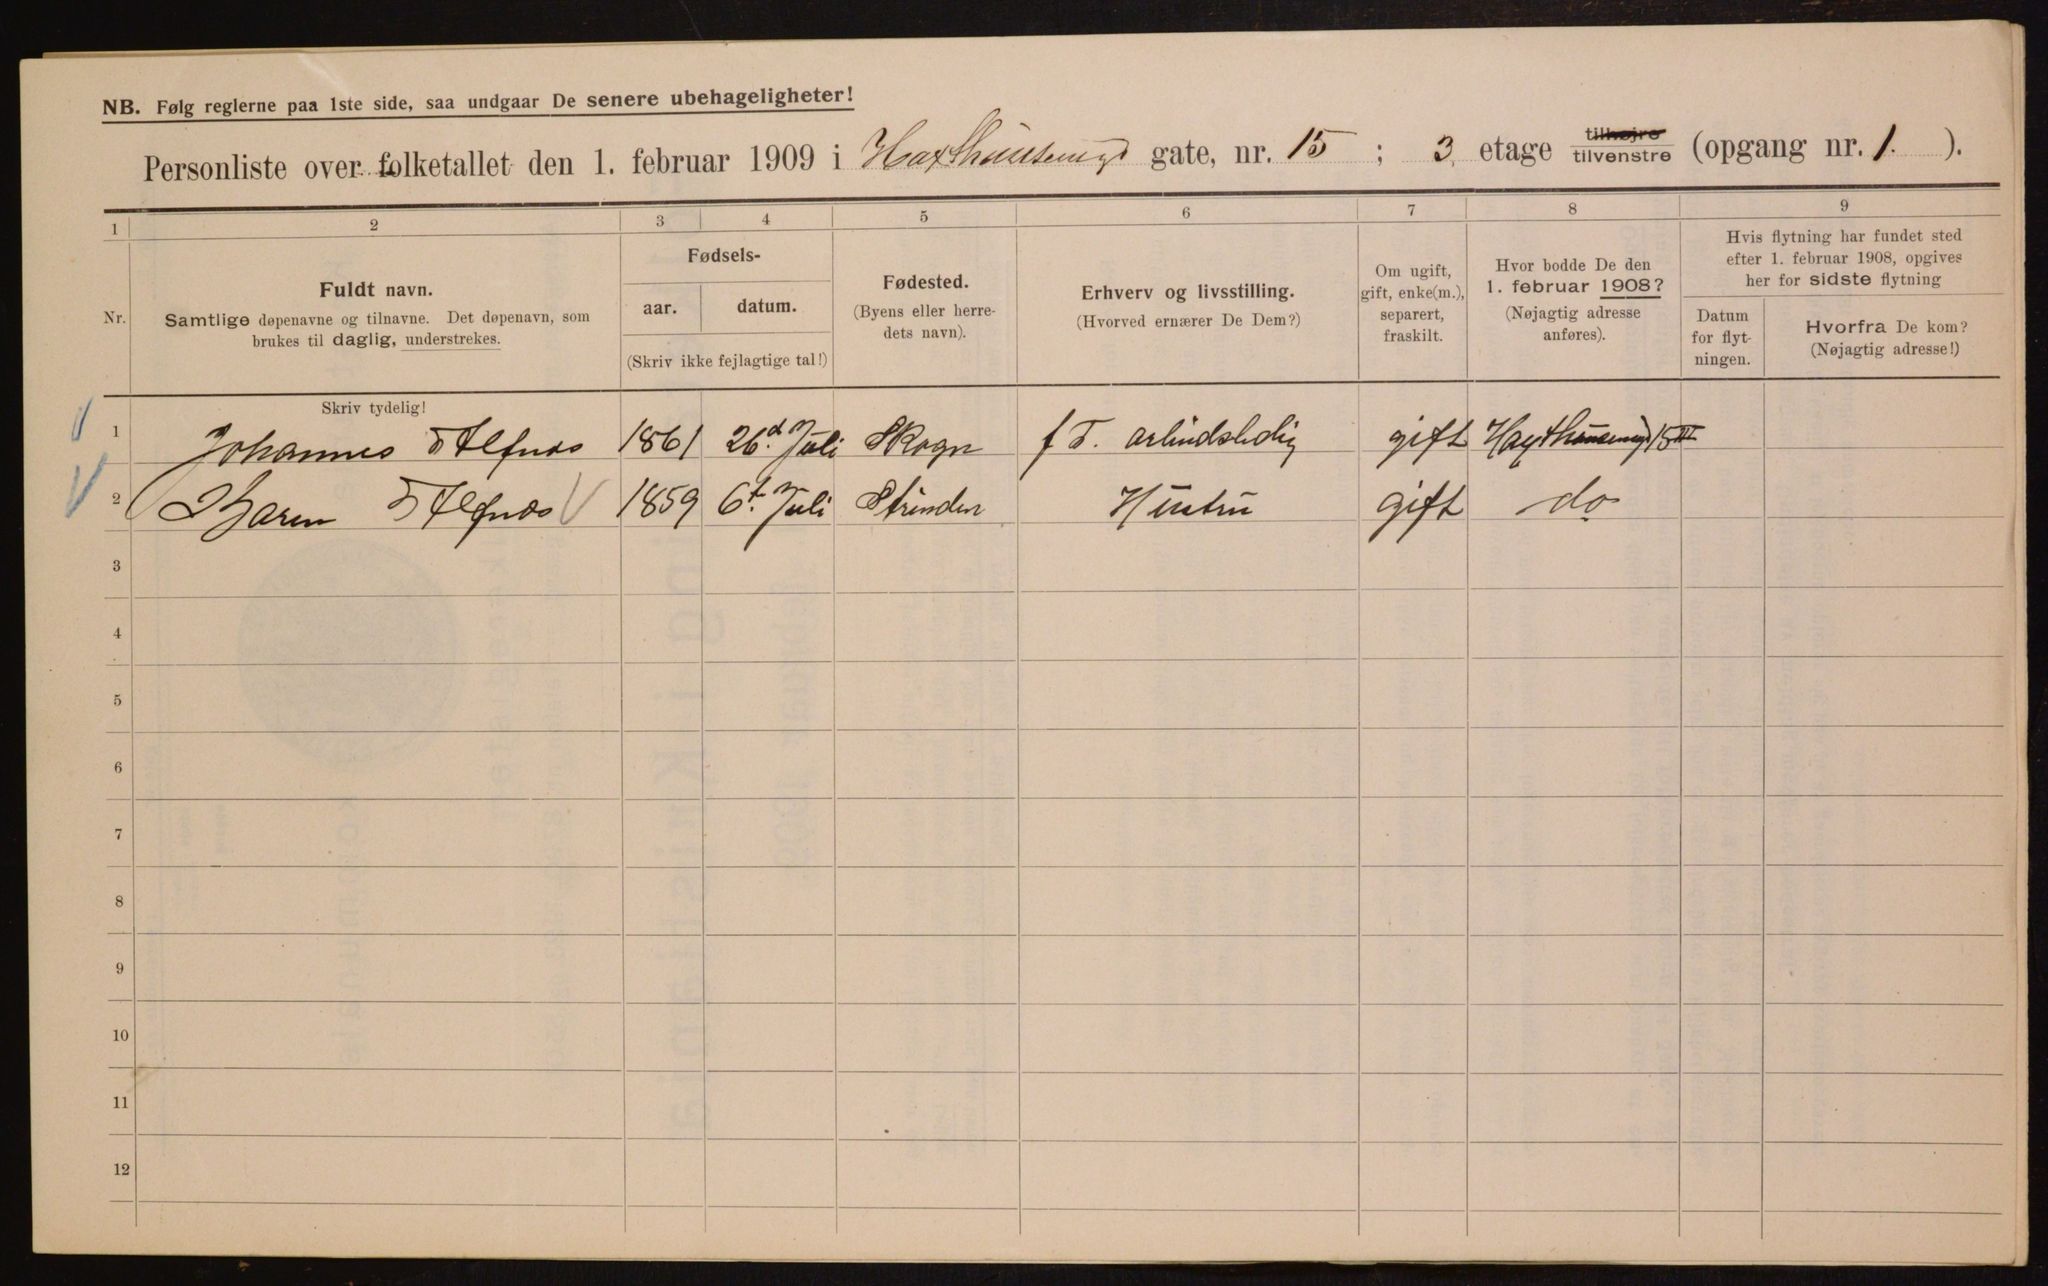 NB. Følg reglerne paa 1ste side, saa undgaar De senere ubehageligheter!
Personliste over folketallet den 1. februar 1909 i Haxthausensgd gate, nr. 15 ; 3. etage tilhøjre tilvenstre (opgang nr. 1. ).
1 2 3 4 5 6 7 8 9
Nr.
Fuldt navn.
Samtlige døpenavne og tilnavne. Det døpenavn, som
brukes til daglig, understrekes.
Skriv tydelig!
Fødsels-
aar. datum.
(Skriv ikke fejlagtige tal!)
Fødested.
(Byens eller herre-
dets navn).
Erhverv og livsstilling.
(Hvorved ernærer De Dem?)
Om ugift,
gift, enke(m.),
separert,
fraskilt.
Hvor bodde De den
1. februar 1908?
(Nøjagtig adresse
anføres).
Hvis flytning har fundet sted
efter 1. februar 1908, opgives
her for sidste flytning
Datum
for flyt-
ningen.
Hvorfra De kom?
(Nøjagtig adresse!)
1 Johannes Alfnæs 1861 26.d Juli Skogn f T. arbeidsledig gift Haxthausensgd 15 III
2 Karen Alfnæs 1859 6.t Juli Strinden Hustru gift do
3
4
5
6
7
8
9
10
11
12